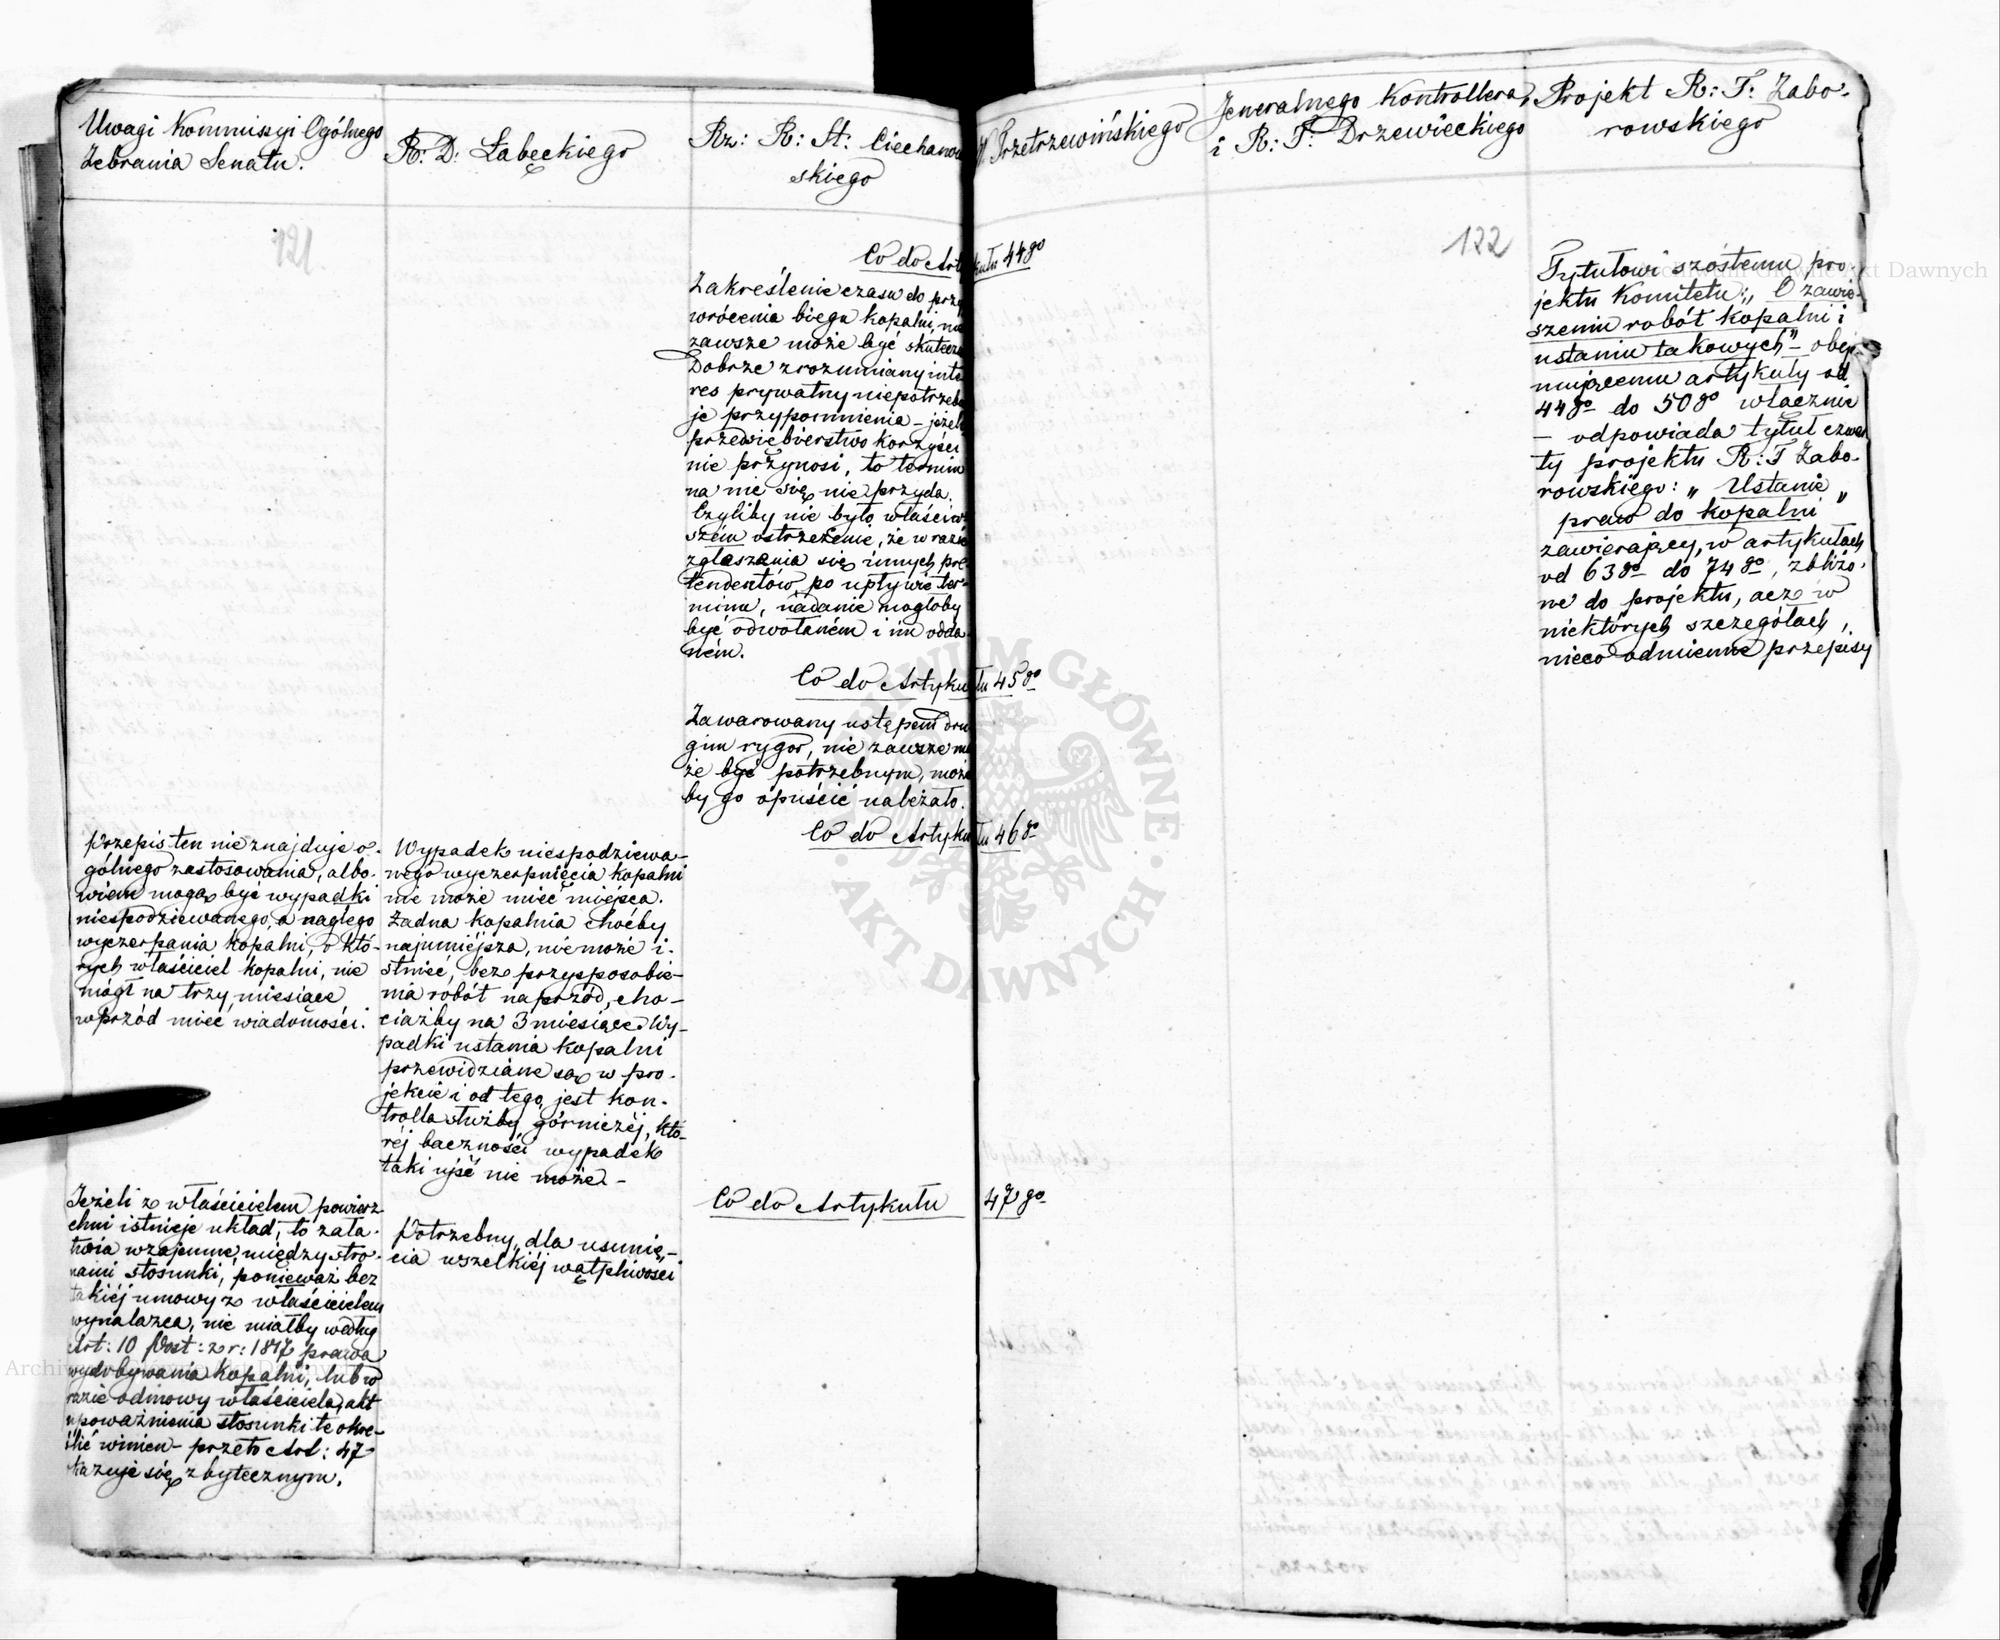 Uwagi Kommissyi Ogólnego
Zebrania Senatu.
R: D: Łabęckiego
Rz: R: St: Ciechanow
skiego
Przetrzewińskiego
Jeneralnego Kontrollera
i R: T: Drzewieckiego
Projekt R: T: Zabo-
rowskiego
121
122
Co do Artykułu 44go
Zakreślenie czasu do przy
wrócenia biegu kopalni, nie
zawsze może być skuteczn
Dobrze zrozumiany inte
res prywatny niepotrzebu
je przypomnienia – jeżeli
przedsiębierstwo korzyści
nie przynosi, to termin
na nic się nie przyda.
Czyliby nie było właściw
szém ostrzeżenie, że w razie
zgłaszania się innych pre-
tendentów, po upływie ter-
minu, nadanie mogłoby
być odwołaném i im odda-
ném.
Co do Artykułu 45go
Zawarowany ustępem dru
gim rygor, nie zawsze mo
że być potrzebnym, może
by go opuścić należało.
Co do Artykułu 46go
Przepis ten nie znajduje o-
gólnego zastosowania, albo-
wiem mogą być wypadki
niespodziewanego, a nagłego
wyczerpania kopalni, o któ-
rych właściciel kopalni, nie
mógł na trzy miesiące
wprzód mieć wiadomości.
Wypadek niespodziewa-
nego wyczerpnięcia kopalni
nie może mieć miejsca.
Żadna kopalnia choćby
najmniejsza, nie może i-
stnieć, bez przysposobie-
nia robót naprzód, cho-
ciażby na 3 miesiące. Wy-
padki ustania kopalni
przewidziane są w pro-
jekcie i od tego jest kon-
trolla służby górniczéj, któ-
réj baczności wypadek
taki ujść nie może –
Co do Artykułu 47go
Jeżeli z właścicielem powierz
chni istnieje układ, to zała-
twia wzajemne między stro-
nami stosunki, ponieważ bez
takiéj umowy z właścicielem
wynalazca, nie miałby według
Art: 10 Post: z r: 1817 prawa
wydobywania kopalni, lub w
razie odmowy właściciela, akt
upoważnienia stosunki te okre-
ślić winien – przeto Art: 47
okazuje się zbytecznym.
Potrzebny, dla usunię-
cia wszelkiéj wątpliwości
Tytułowi szóstemu pro-
jektu Komitetu: „O zawie-
szeniu robót kopalni i
ustaniu takowych” – obej-
mującemu artykuły od
44go do 50go włącznie
– odpowiada tytuł czwar
ty projektu R: T Zabo-
rowskiego: „Ustanie
praw do kopalni”
zawierający, w artykułach
od 63go do 74go, zbliżo-
ne do projektu, acz w
niektórych szczegółach,
nieco odmienne przepisy
Archiwum Główne Akt Dawnych
Archiwum Główne Akt Dawnych
ARCHIWUM GŁÓWNE · AKT DAWNYCH ·